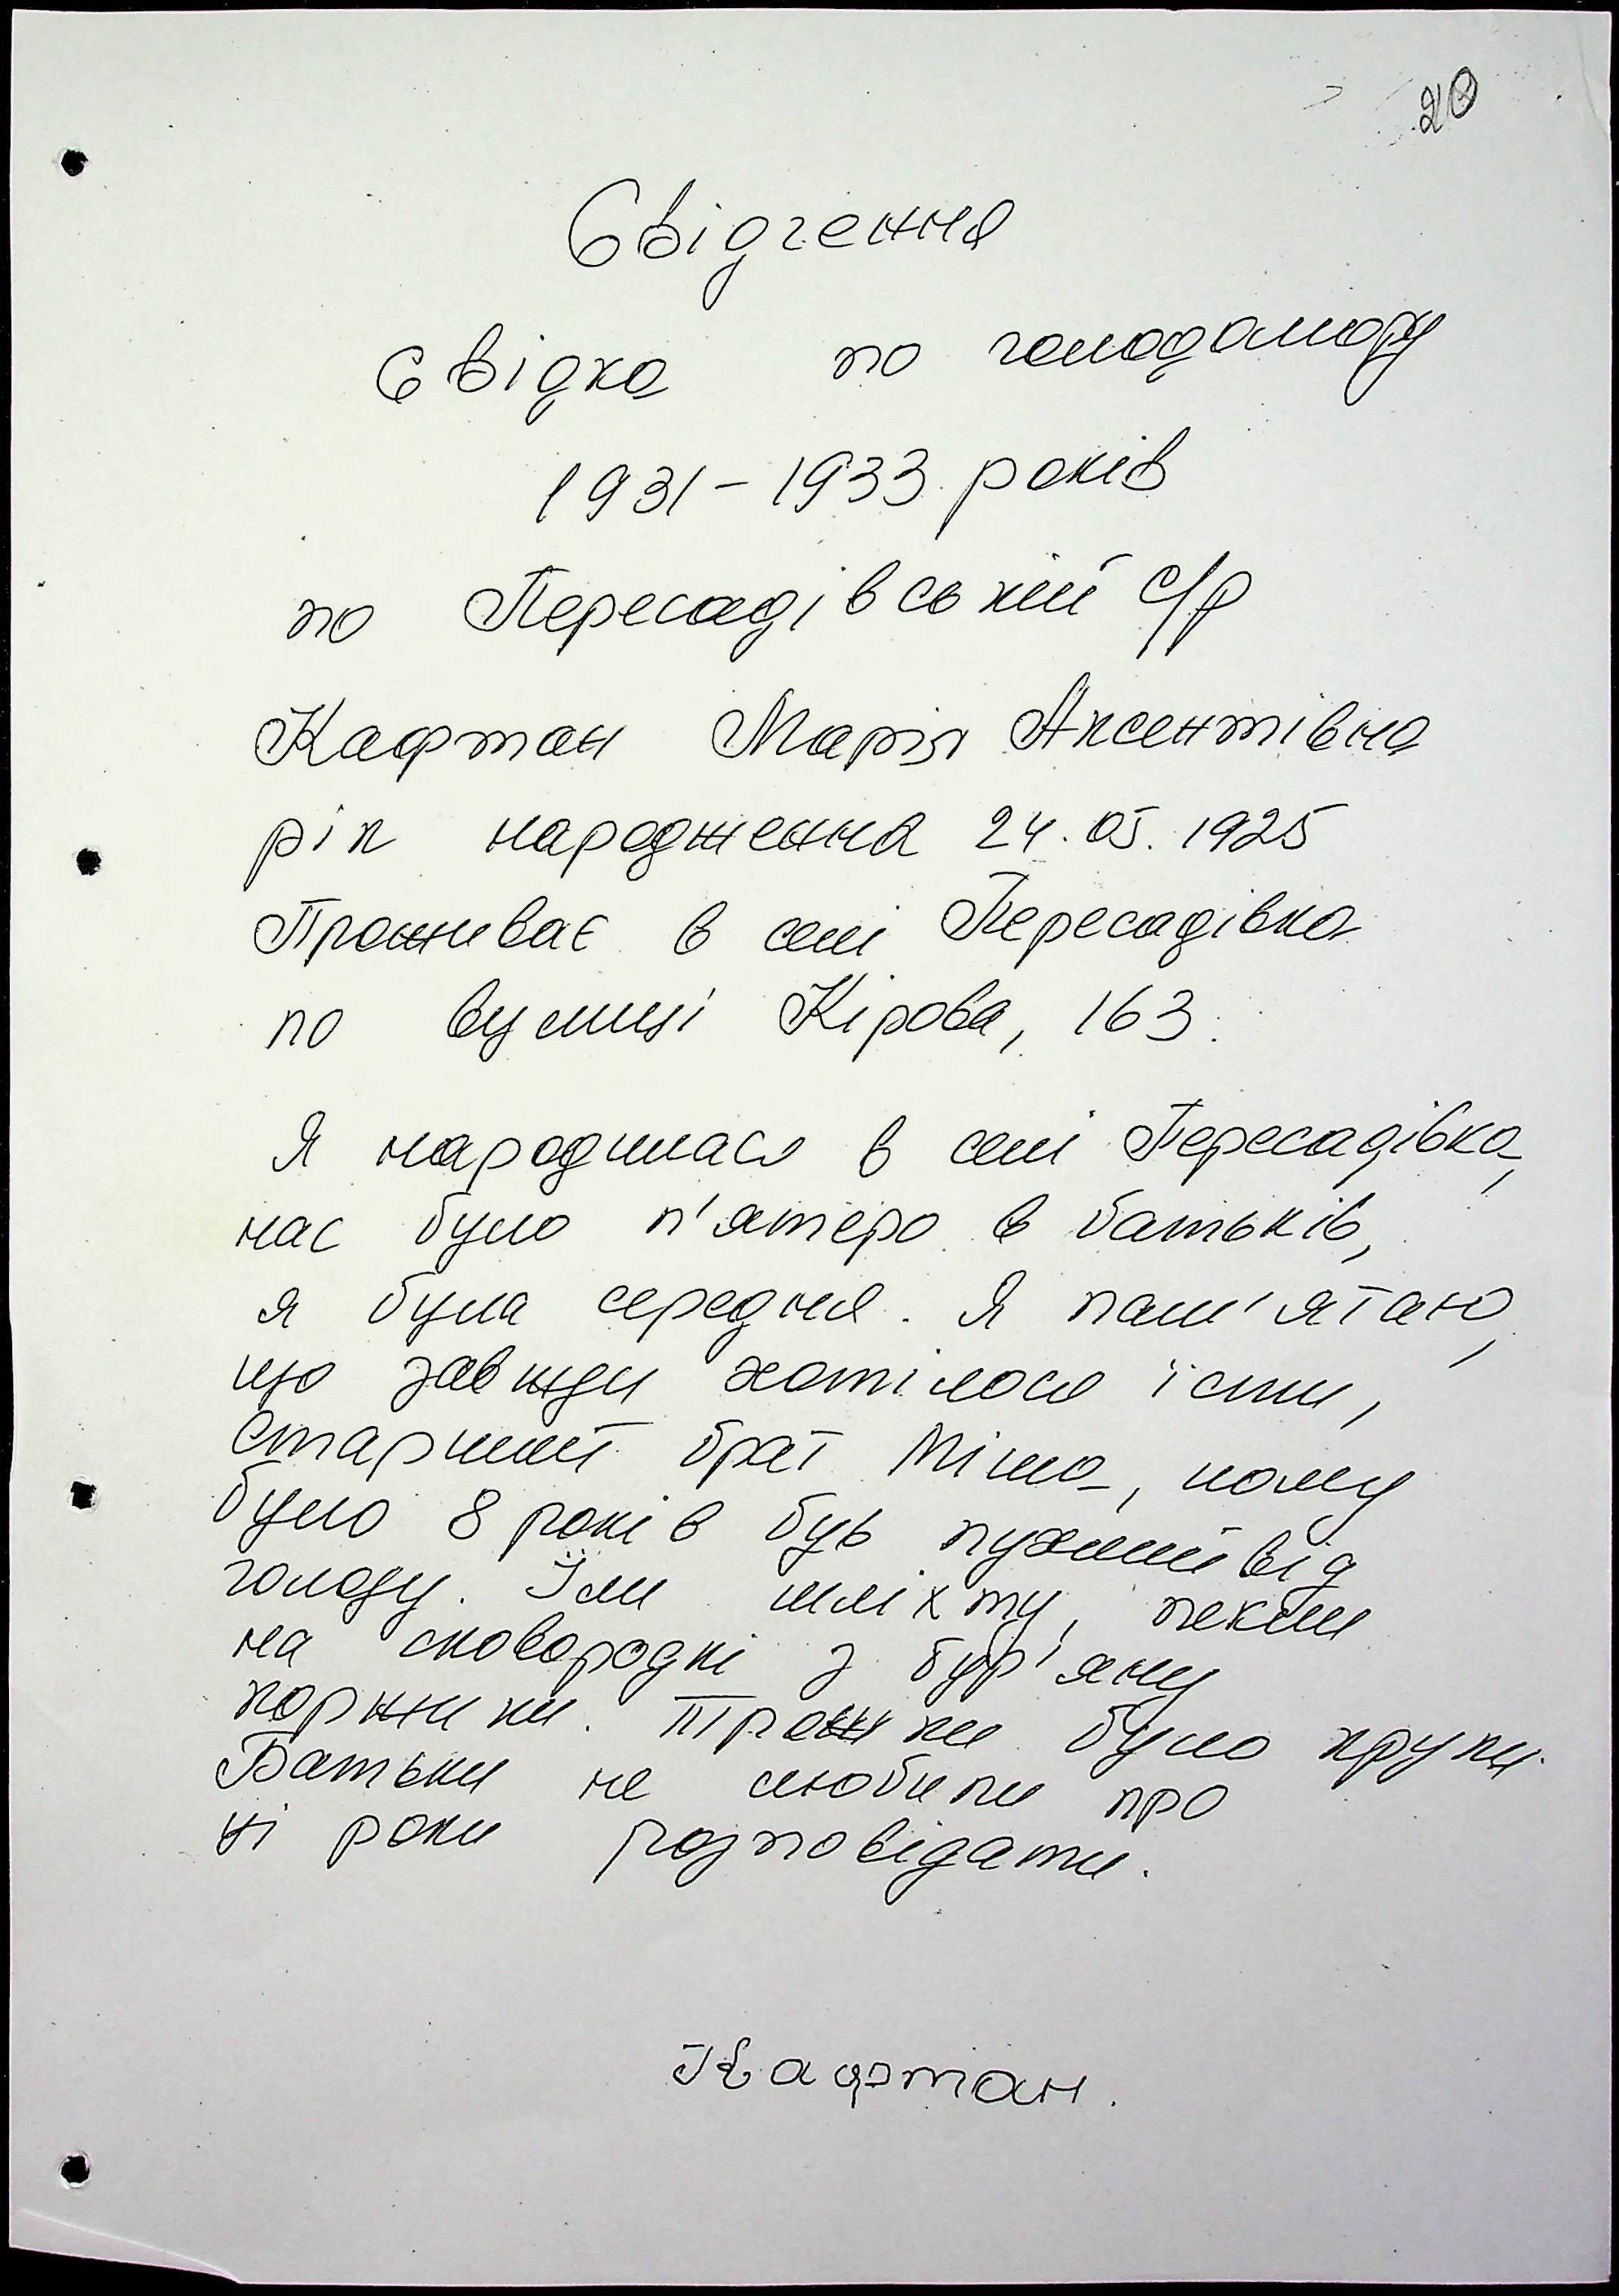 20
Свідчення
свідка по голодомору
1931-1933 років
по Пересадівській с/р
Кафтан Марія Аксентівна
рік народження 24.05.1925
Проживає в селі Пересадівка
по вулиці Кірова, 163.
Я народилася в селі Пересадівка,
нас було п'ятеро в батьків,
я була середня. Я пам'ятаю,
що завжди хотілося їсти,
старший брат Міша, йому
було 8 років був пухлий від
голоду. Їли шліхту, пекли
на сковородкі з бур'яну
коржики. Трошки було крупи.
Батьки не любили про
ті роки розповідати.
Кафтан.